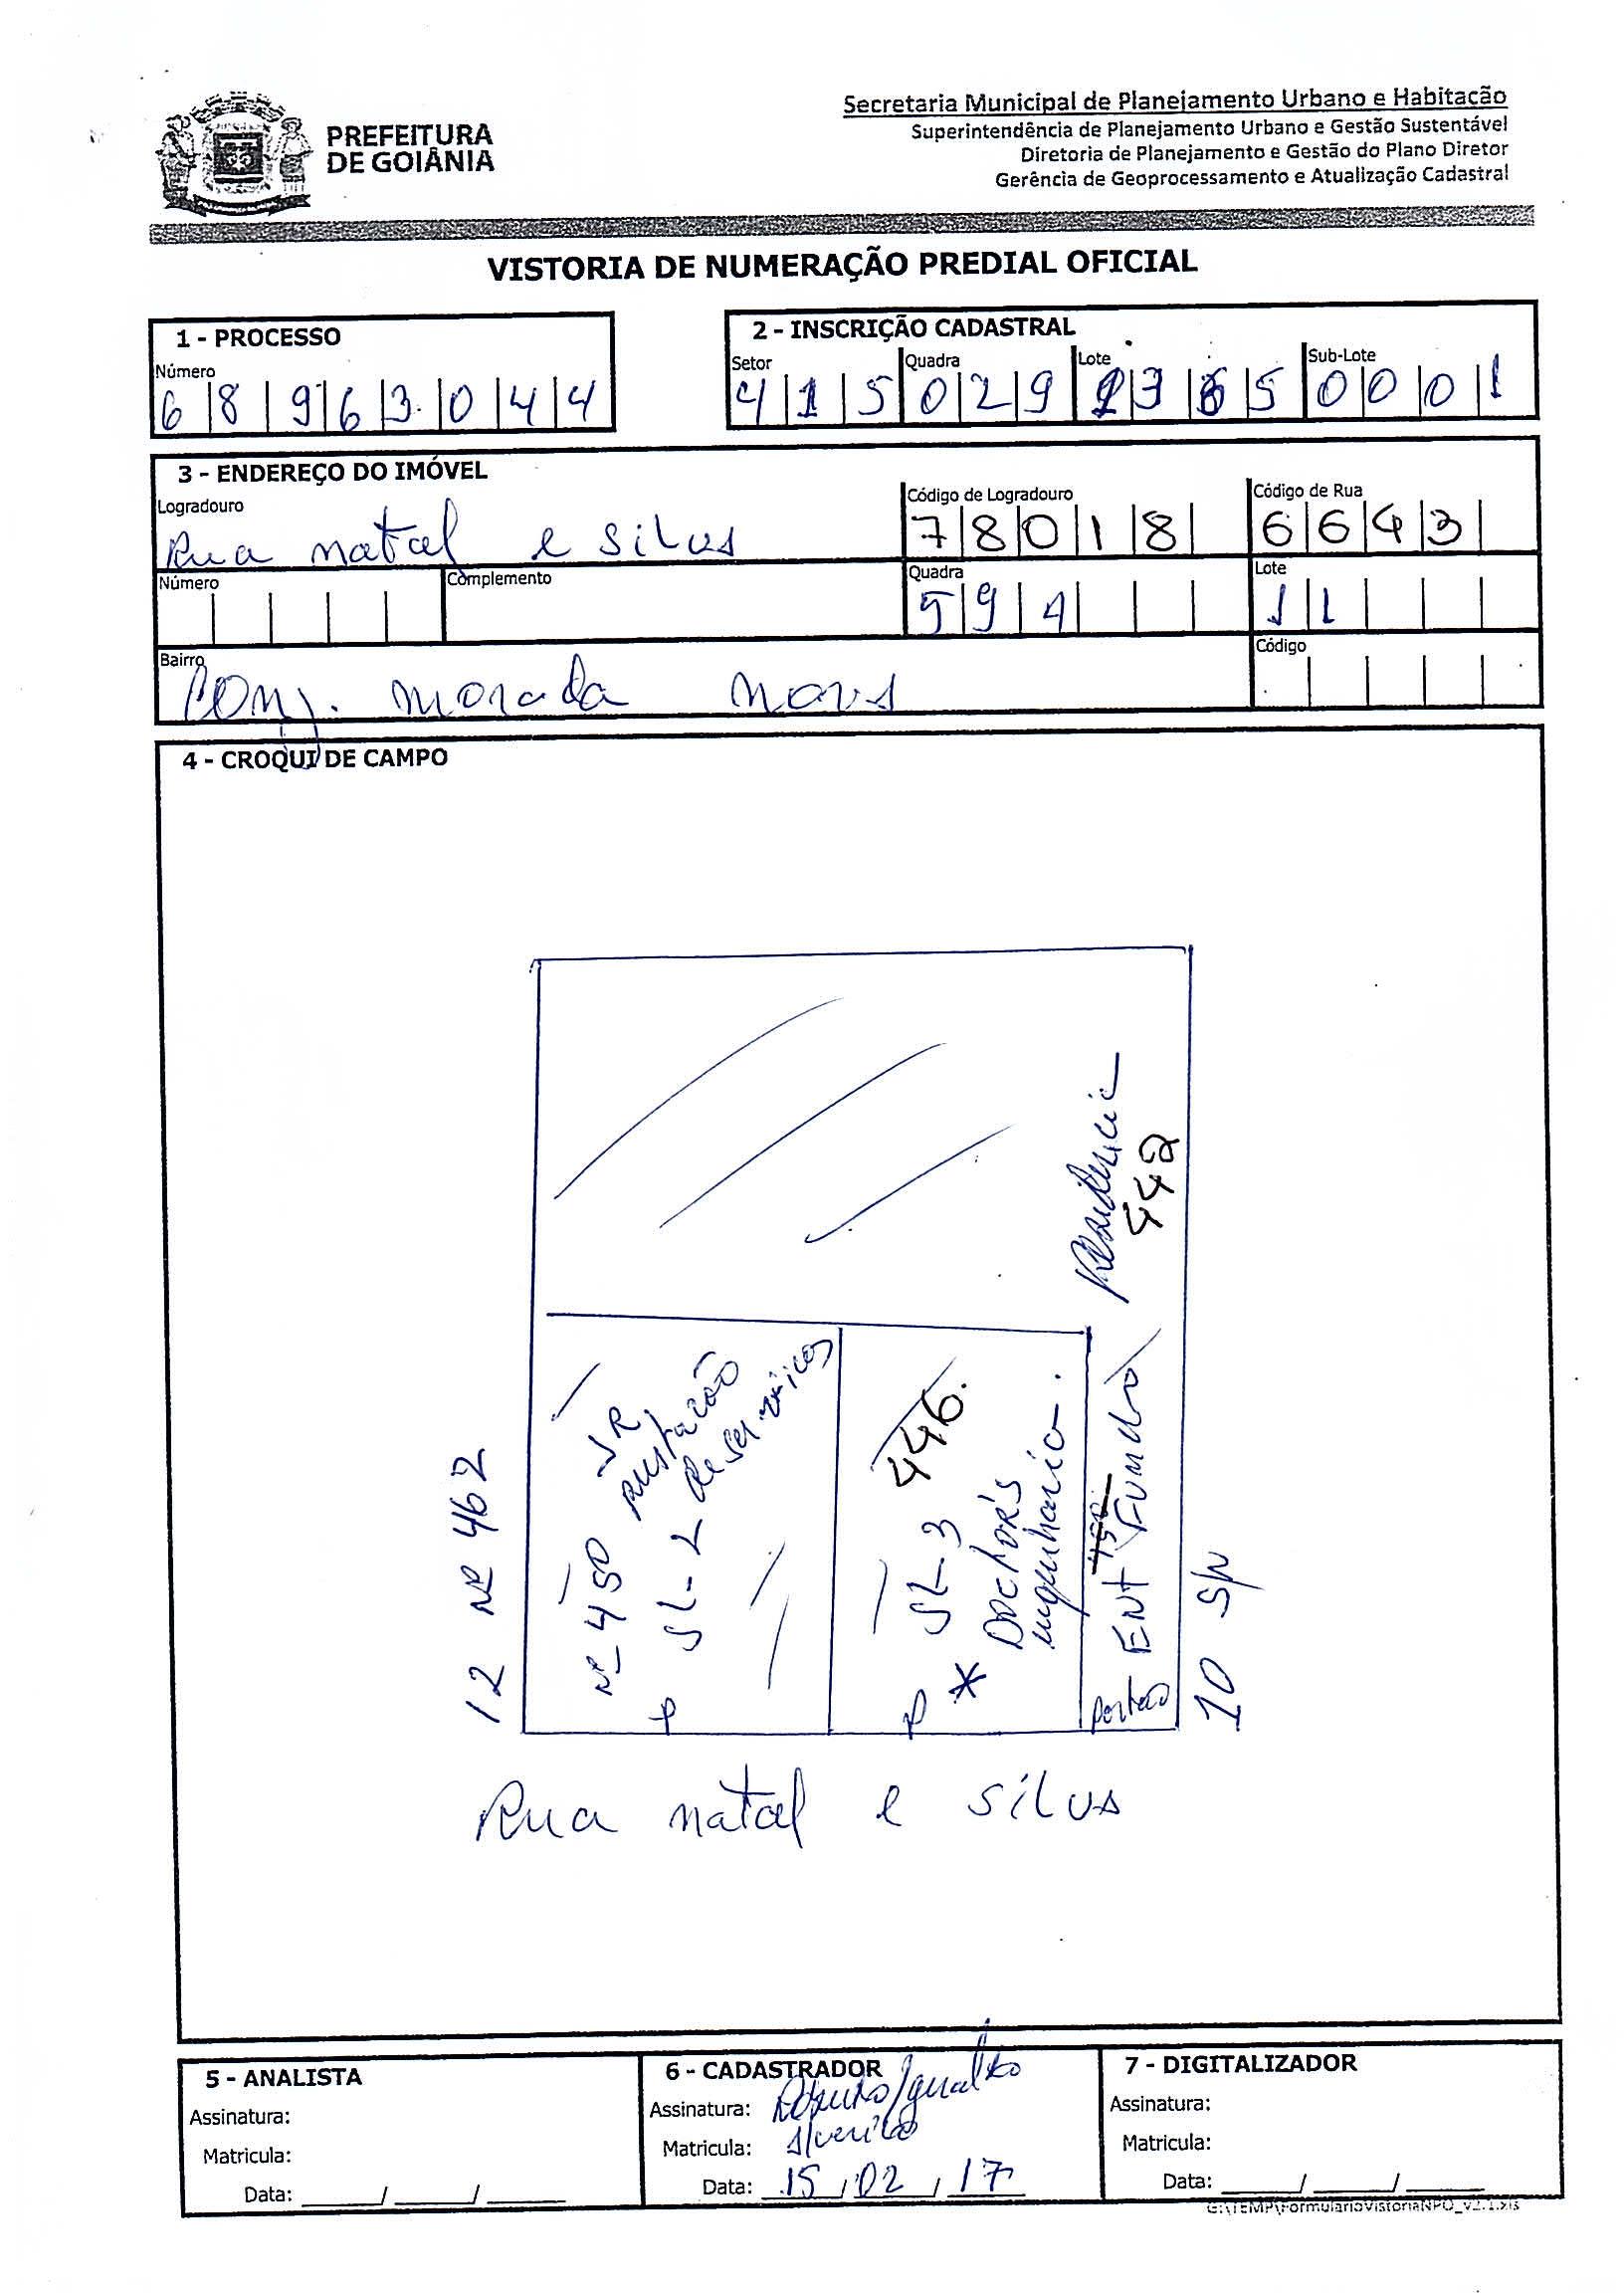 PREFEITURA
DE GOIÂNIA
Secretaria Municipal de Planejamento Urbano e Habitação
Superintendência de Planejamento Urbano e Gestão Sustentável
Diretoria de Planejamento e Gestão do Plano Diretor
Gerência de Geoprocessamento e Atualização Cadastral
VISTORIA DE NUMERAÇÃO PREDIAL OFICIAL
1 - PROCESSO
Número
6 8 9 6 3 0 4 4
2 - INSCRIÇÃO CADASTRAL
Setor Quadra Lote Sub-Lote
4 1 5 0 2 9 3 5 0 0 0 1
3 - ENDEREÇO DO IMÓVEL
Logradouro Código de Logradouro Código de Rua
Rua natal e silva 7 8 0 1 8 6 6 4 3
Número Complemento Quadra Lote
5 9 A 1 1
Bairro Código
Conj. morada nova
4 - CROQUI DE CAMPO
Residencia
442
12 Nº 462
Nº 450
JR
prestação
de serviços
SL-2
P
446.
SL-3
Doctor's
P *
450
ENT Fundo
Portão
10 S/N
Rua natal e silva
5 - ANALISTA
Assinatura:
Matricula:
Data: ____/____/____
6 - CADASTRADOR
Assinatura:
Matricula:
Data: 15/02/17
7 - DIGITALIZADOR
Assinatura:
Matricula:
Data: ____/____/____
G:\TEMP\FormularioVistoriaNPO_v2.1.xls